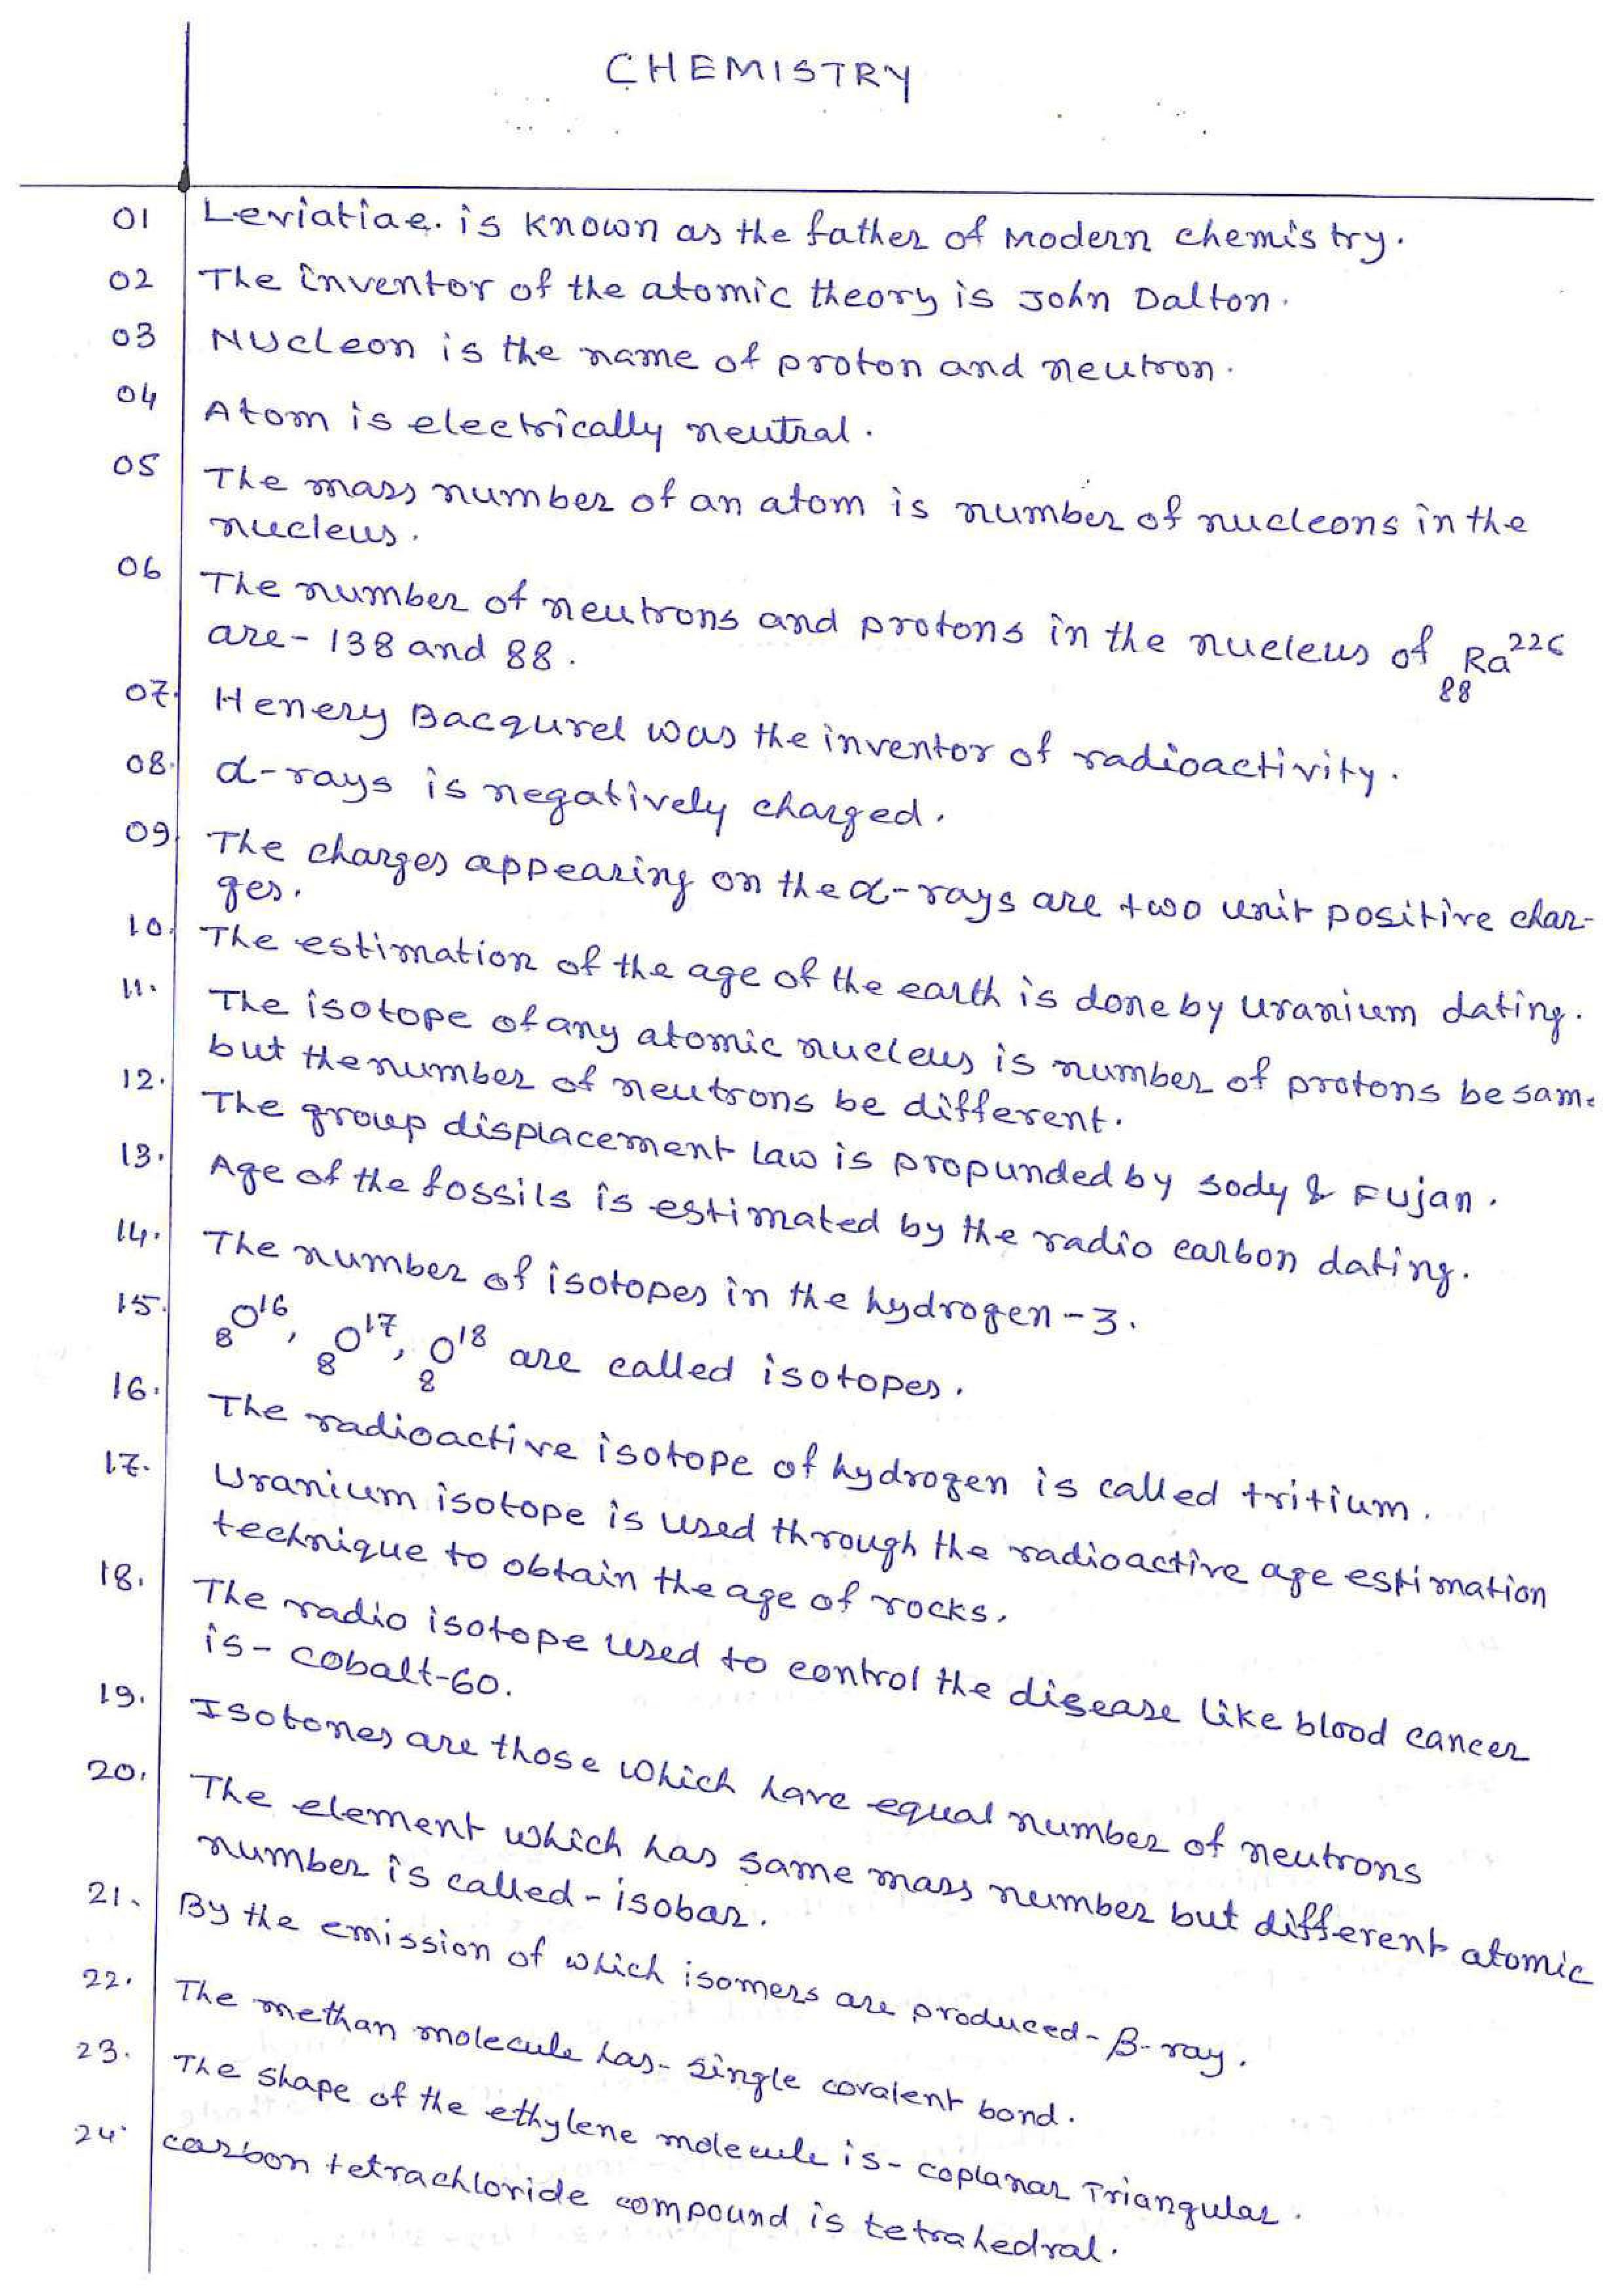 CHEMISTRY
01 Leviatiae. is known as the father of Modern chemistry.
02 The inventor of the atomic theory is John Dalton.
03 Nucleon is the name of proton and neutron.
04 Atom is electrically neutral.
05 The mass number of an atom is number of nucleons in the
nucleus.
06 The number of neutrons and protons in the nucleus of ₈₈Ra²²⁶
are- 138 and 88.
07. Henery Bacqurel was the inventor of radioactivity.
08. α-rays is negatively charged.
09. The charges appearing on the α-rays are two unit positive char-
ges.
10. The estimation of the age of the earth is done by uranium dating.
11. The isotope of any atomic nucleus is number of protons be same
but the number of neutrons be different.
12. The group displacement law is propunded by sody & Fujan.
13. Age of the fossils is estimated by the radio carbon dating.
14. The number of isotopes in the hydrogen-3.
15. ₈O¹⁶, ₈O¹⁷, ₈O¹⁸ are called isotopes.
16. The radioactive isotope of hydrogen is called tritium.
17. Uranium isotope is used through the radioactive age estimation
technique to obtain the age of rocks.
18. The radio isotope used to control the disease like blood cancer
is- cobalt-60.
19. Isotones are those which have equal number of neutrons
20. The element which has same mass number but different atomic
number is called- isobar.
21. By the emission of which isomers are produced- β-ray.
22. The methan molecule has- single covalent bond.
23. The shape of the ethylene molecule is- coplanar Triangular.
24. carbon tetrachloride compound is tetrahedral.